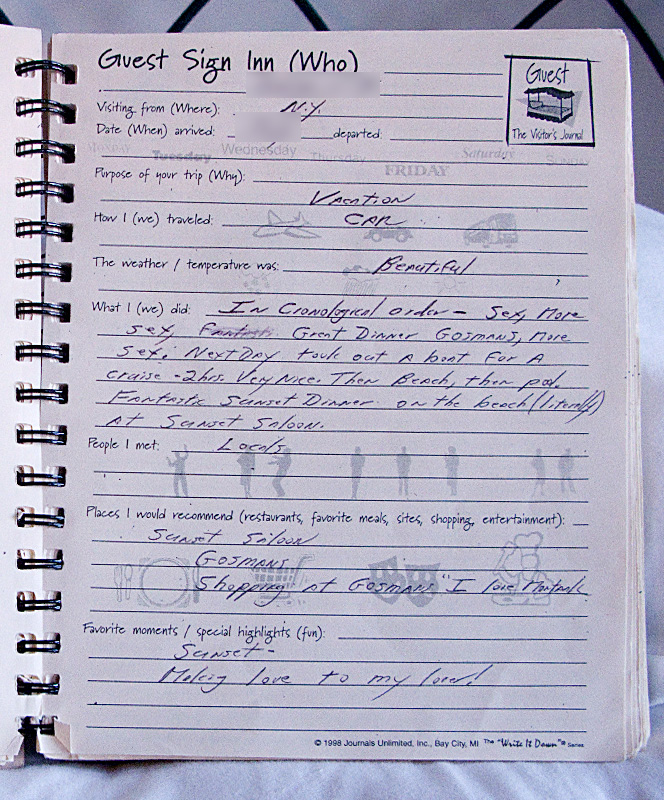 Guest Sign Inn (Who)
Guest
The Visitor's Journal
Visiting from (Where): N.Y.
Date (When) arrived: departed:
Monday Tuesday Wednesday Thursday FRIDAY Saturday Sunday
Purpose of your trip (Why):
Vacation
How I (we) traveled: CAR
The weather / temperature was: Beautiful
What I (we) did: In Cronological order - Sex, More
Sex, Fantasti Great Dinner Gosmans, More
Sex. Next Day took out A boat For A
cruise - 2hrs. Very Nice. Then Beach, then pool.
Fantastic Sunset Dinner on the beach (literally)
At Sunset Saloon.
People I met: Locals
Places I would recommend (restaurants, favorite meals, sites, shopping, entertainment):
Sunset Saloon
Gosmans
Shopping at Gosmans "I love Montauk
Favorite moments / special highlights (fun):
Sunset -
Making love to my lover!
© 1998 Journals Unlimited, Inc., Bay City, MI The "Write It Down"® Series